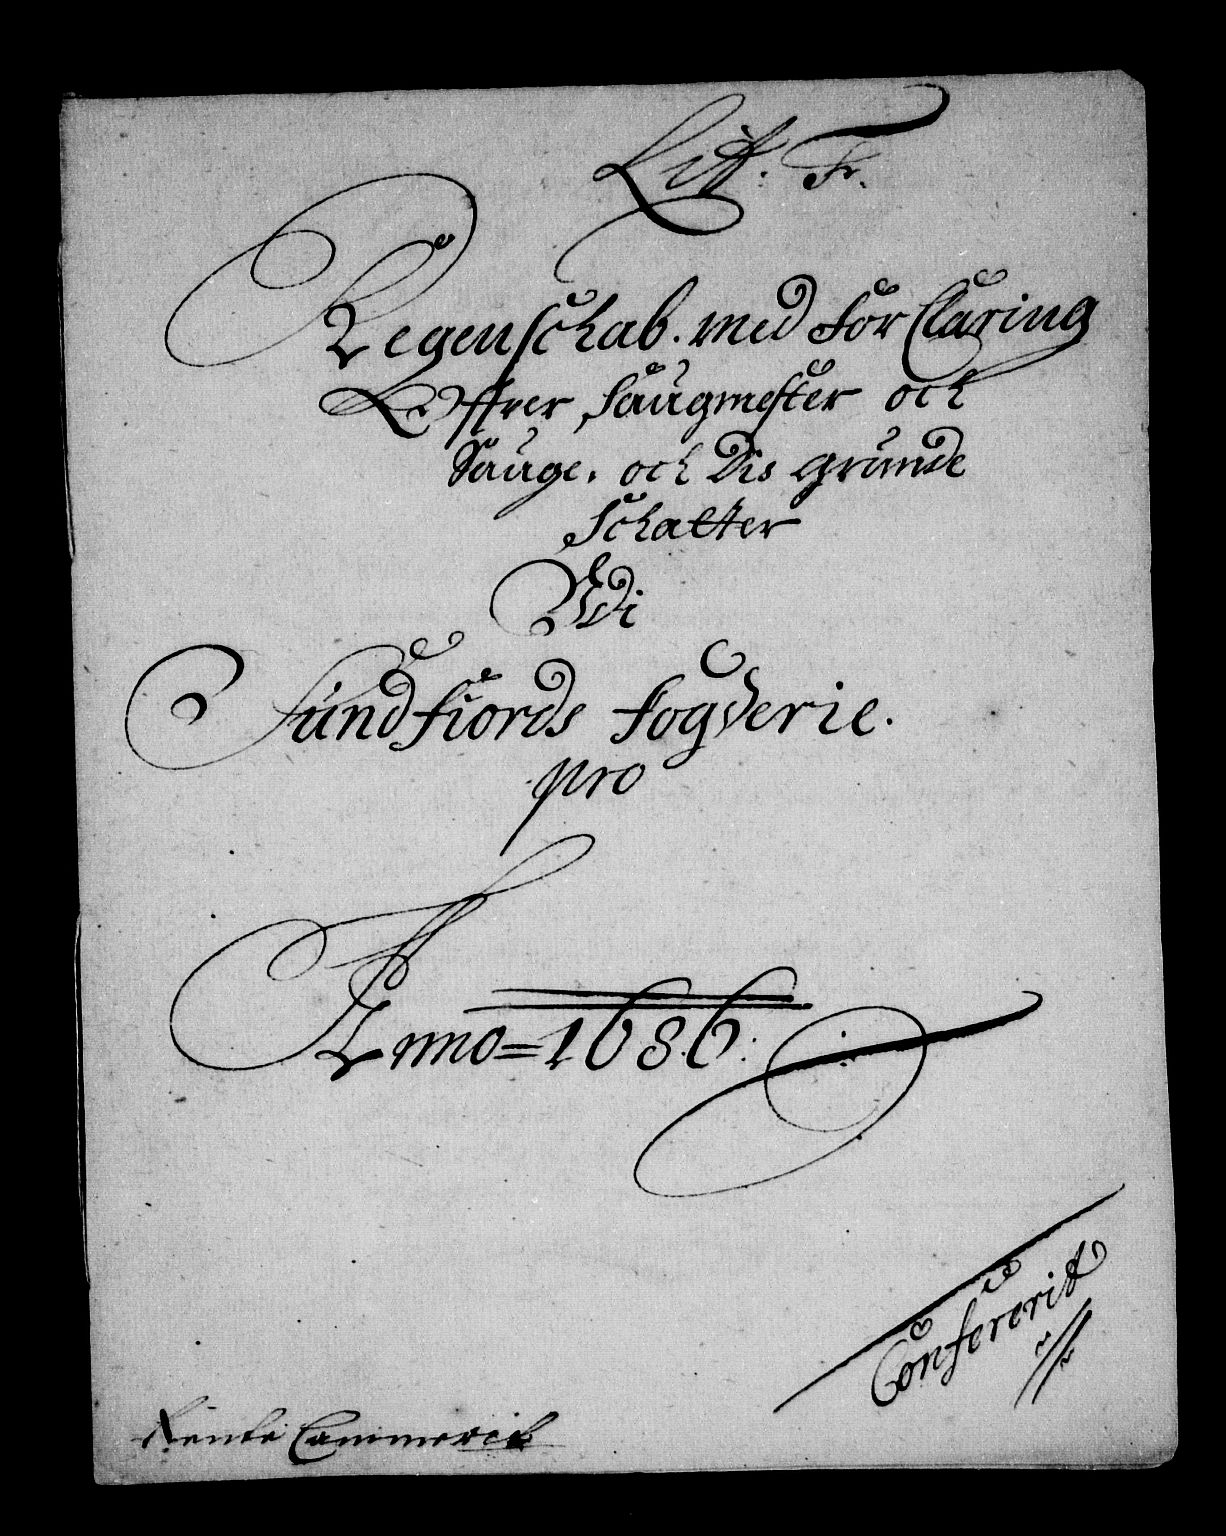 Litt. Fr.
Regenschab. med forClaring
Offver Saugmester och
Sauge. och Dis Grunde
Schatter
Udi
Sundfiords Fogderie.
pro
Anno = 1686.
Confererit
Rente Cammerit